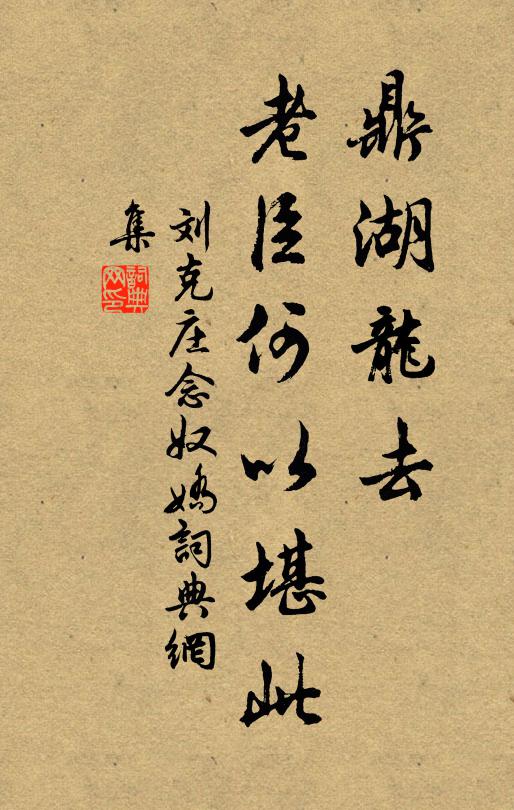 鼎湖龍去
老臣何以堪此
刘克庄念奴嬌詞典網
集
詞典網印